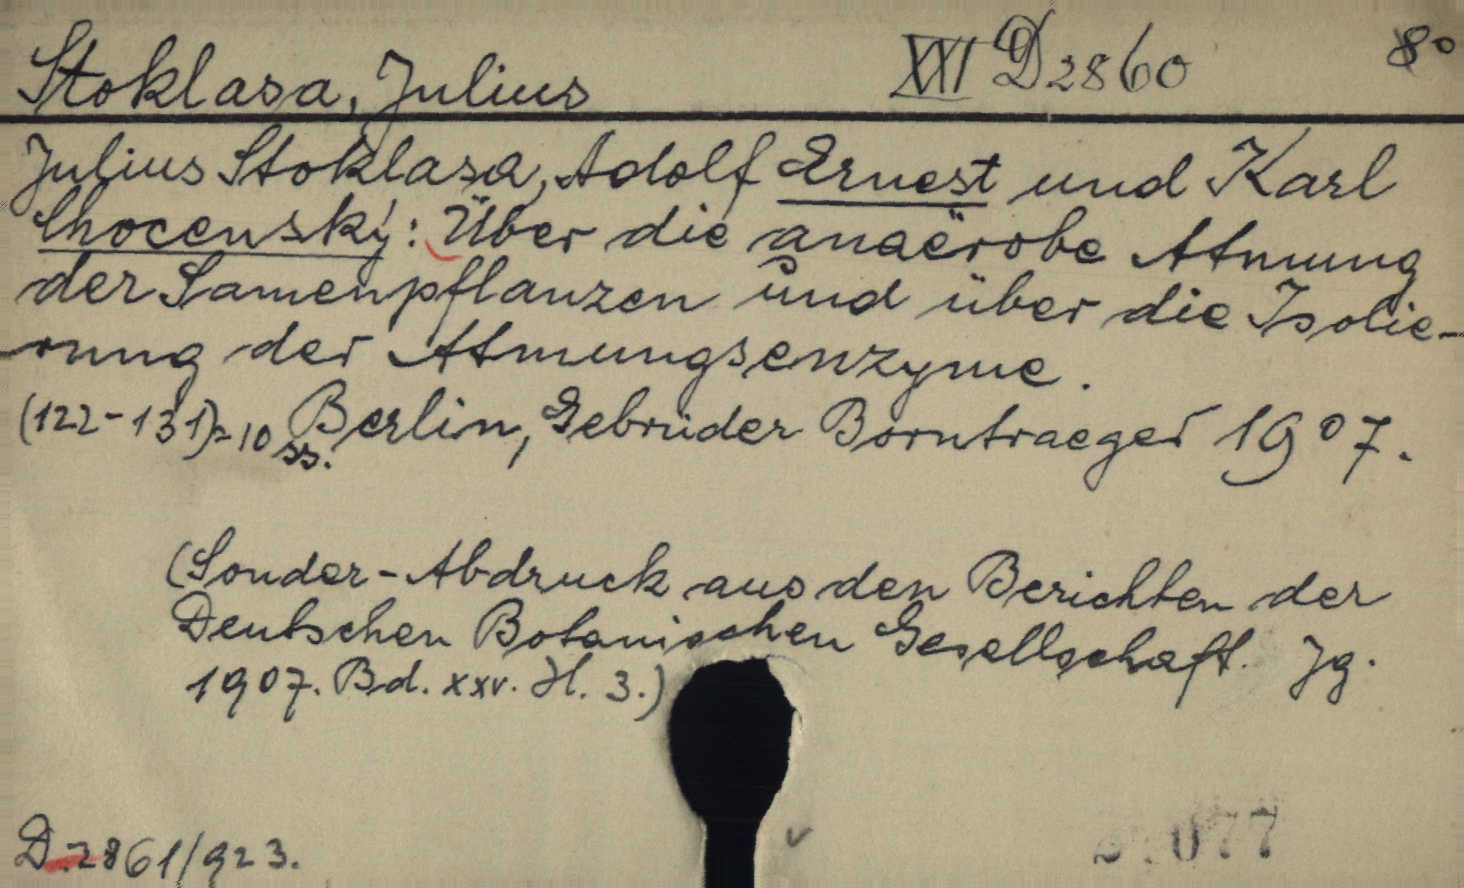 Stoklasa, Julius XXI D 2860 8°
Julius Stoklasa, Adolf Ernest und Karl
Chocenský: Über die anaërobe Atmung
der Samenpflanzen und über die Isolie-
rung der Atmungsenzyme.
(122-131)=10 ss. Berlin, Gebrüder Borntraeger 1907.
(Sonder-Abdruck aus den Berichten der
Deutschen Botanischen Gesellschaft. Jg.
1907. Bd. XXV. H. 3.)
D.2861/923.